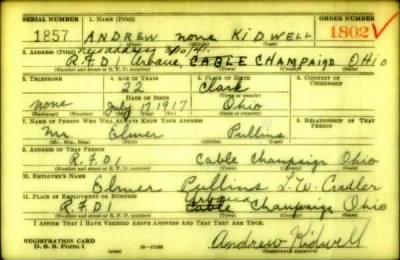 SERIAL NUMBER 1. NAME (Print) ORDER NUMBER
1857 ANDREW none KIDWELL 1802
(First) (Middle) (Last)
2. ADDRESS (Print) New address 3/10/41.
R.F.D. Urbana, CABLE CHAMPAIGN OHIO
(Number and street or R. F. D. number) (Town) (County) (State)
3. TELEPHONE 4. AGE IN YEARS 5. PLACE OF BIRTH 6. COUNTRY OF CITIZENSHIP
22 Clark
DATE OF BIRTH (Town or county)
none July 17 1917 Ohio
(Exchange) (Number) (Mo.) (Day) (Yr.) (State or country)
7. NAME OF PERSON WHO WILL ALWAYS KNOW YOUR ADDRESS 8. RELATIONSHIP OF THAT PERSON
Mr. Elmer Pullins
(Mr., Mrs., Miss) (First) (Middle) (Last)
9. ADDRESS OF THAT PERSON
R.F.D 1 Cable Champaign Ohio
(Number and street or R. F. D. number) (Town) (County) (State)
10. EMPLOYER'S NAME
Elmer Pullins
11. PLACE OF EMPLOYMENT OR BUSINESS Urbana
R.F.D 1 Cable Champaign Ohio
(Number and street or R. F. D. number) (Town) (County) (State)
I AFFIRM THAT I HAVE VERIFIED ABOVE ANSWERS AND THAT THEY ARE TRUE.
REGISTRATION CARD
D. S. S. Form 1 16—17105 Andrew Kidwell